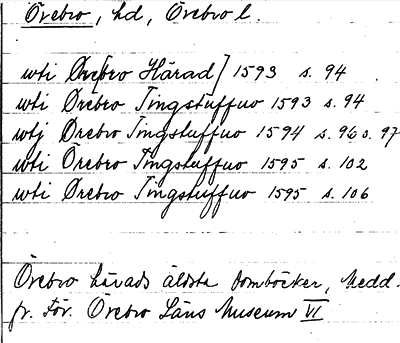 Örebro, hd, Örebro l.
uti Øre[bro Härad] 1593 s. 94
uti Ørebro Tingstuffuo 1593 s. 94
utj Ørebro Tingstuffuo 1594 s. 96 o. 97
uti Örebro Tingstuffuo 1595 s. 102
uti Ørebro Tingstuffuo 1595 s. 106
Örebro härads äldsta domböcker, Medd.
fr. För. Örebro Läns Museum VI